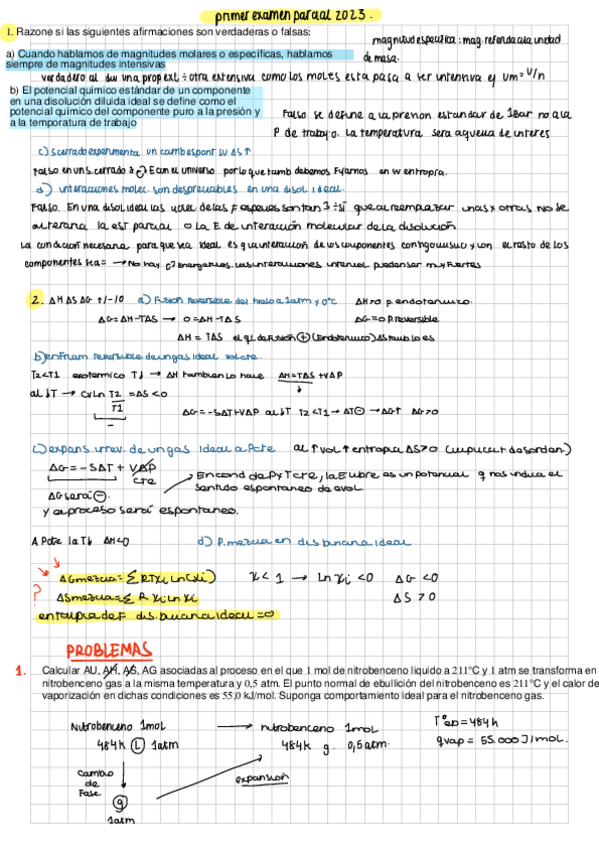 primer examen parcial 2023.
1. Razone si las siguientes afirmaciones son verdaderas o falsas:
magnitud especifica: mag. referida a la unidad
de masa.
a) Cuando hablamos de magnitudes molares o específicas, hablamos
siempre de magnitudes intensivas
verdadero al div una prop ext ÷ otra extensiva como los moles esta pasa a ser intensiva ej Vm = V/n
b) El potencial químico estándar de un componente
en una disolución diluida ideal se define como el
potencial químico del componente puro a la presión y
a la temperatura de trabajo
Falso se define a la presion estandar de 1bar no a la
P de trabajo. La temperatura sera aquella de interes
c) s cerrado experimenta un camb espont su ΔS↑
Falso en un s. cerrado E con el universo por lo que tamb debemos fijarnos en entropia.
d) interacciones molec. son despreciables en una disol ideal.
Falso. En una disol ideal las de las F especies son tan si que al reemplazar unas x otras no se
alteraria la est parcial o la E de interacción molecular de la disolución
La condición necesaria para que sea ideal es q interaccion de los componentes consigo mismo y con el resto de los
componentes sea = → No hay energeticos. Las interacciones intermol puedan ser muy fuertes
2. ΔH ΔS ΔG +/-/0 a) Fusión reversible del hielo a 1atm y 0°C ΔH>0 p. endotermico.
ΔG=ΔH-TΔS → 0=ΔH-TΔS ΔG=0 p.reversible
ΔH = TΔS el qL de fusión (+) (Endotermico) ΔS tamb lo es
b) enfriam reversible de un gas ideal vol cte.
T2<T1 exotermico T↓ → ΔH tambien lo hace ΔH=TΔS+VΔP
al ↓T → CvLn T2/T1 = ΔS <0
-
ΔG=-SΔT+VΔP al ↓T T2<T1 → ΔT(-) → ΔG↑ ΔG>0
c) expans. irrev. de un gas ideal a Pcte al ↑vol ↑entropia ΔS>0
ΔG=-SΔT + VΔP
cte
En cond de P y T cte, la E libre es un potencial q nos indica el
sentido espontaneo de evol
ΔG será (-).
y el proceso será espontaneo.
A Pcte la T↓ ΔH<0 d) P.mezcla en dis binaria ideal
ΔGmezcla=∑RTXi Ln(Xi) X<1 → Ln Xi <0 ΔG <0
? ΔSmezcla=∑ R Xi Ln Xi ΔS >0
entalpia de F dis. binaria ideal =0
PROBLEMAS
1. Calcular AU, AH, AS, AG asociadas al proceso en el que 1 mol de nitrobenceno liquido a 211°C y 1 atm se transforma en
nitrobenceno gas a la misma temperatura y 0,5 atm. El punto normal de ebullición del nitrobenceno es 211°C y el calor de
vaporización en dichas condiciones es 55,0 kJ/mol. Suponga comportamiento ideal para el nitrobenceno gas.
Nitrobenceno 1mol → nitrobenceno 1mol
484k (L) 1atm 484k g. 0,5atm.
T°eb=484k
qvap = 55.000J/mol.
Cambio
de
Fase.
expansión
g
1atm